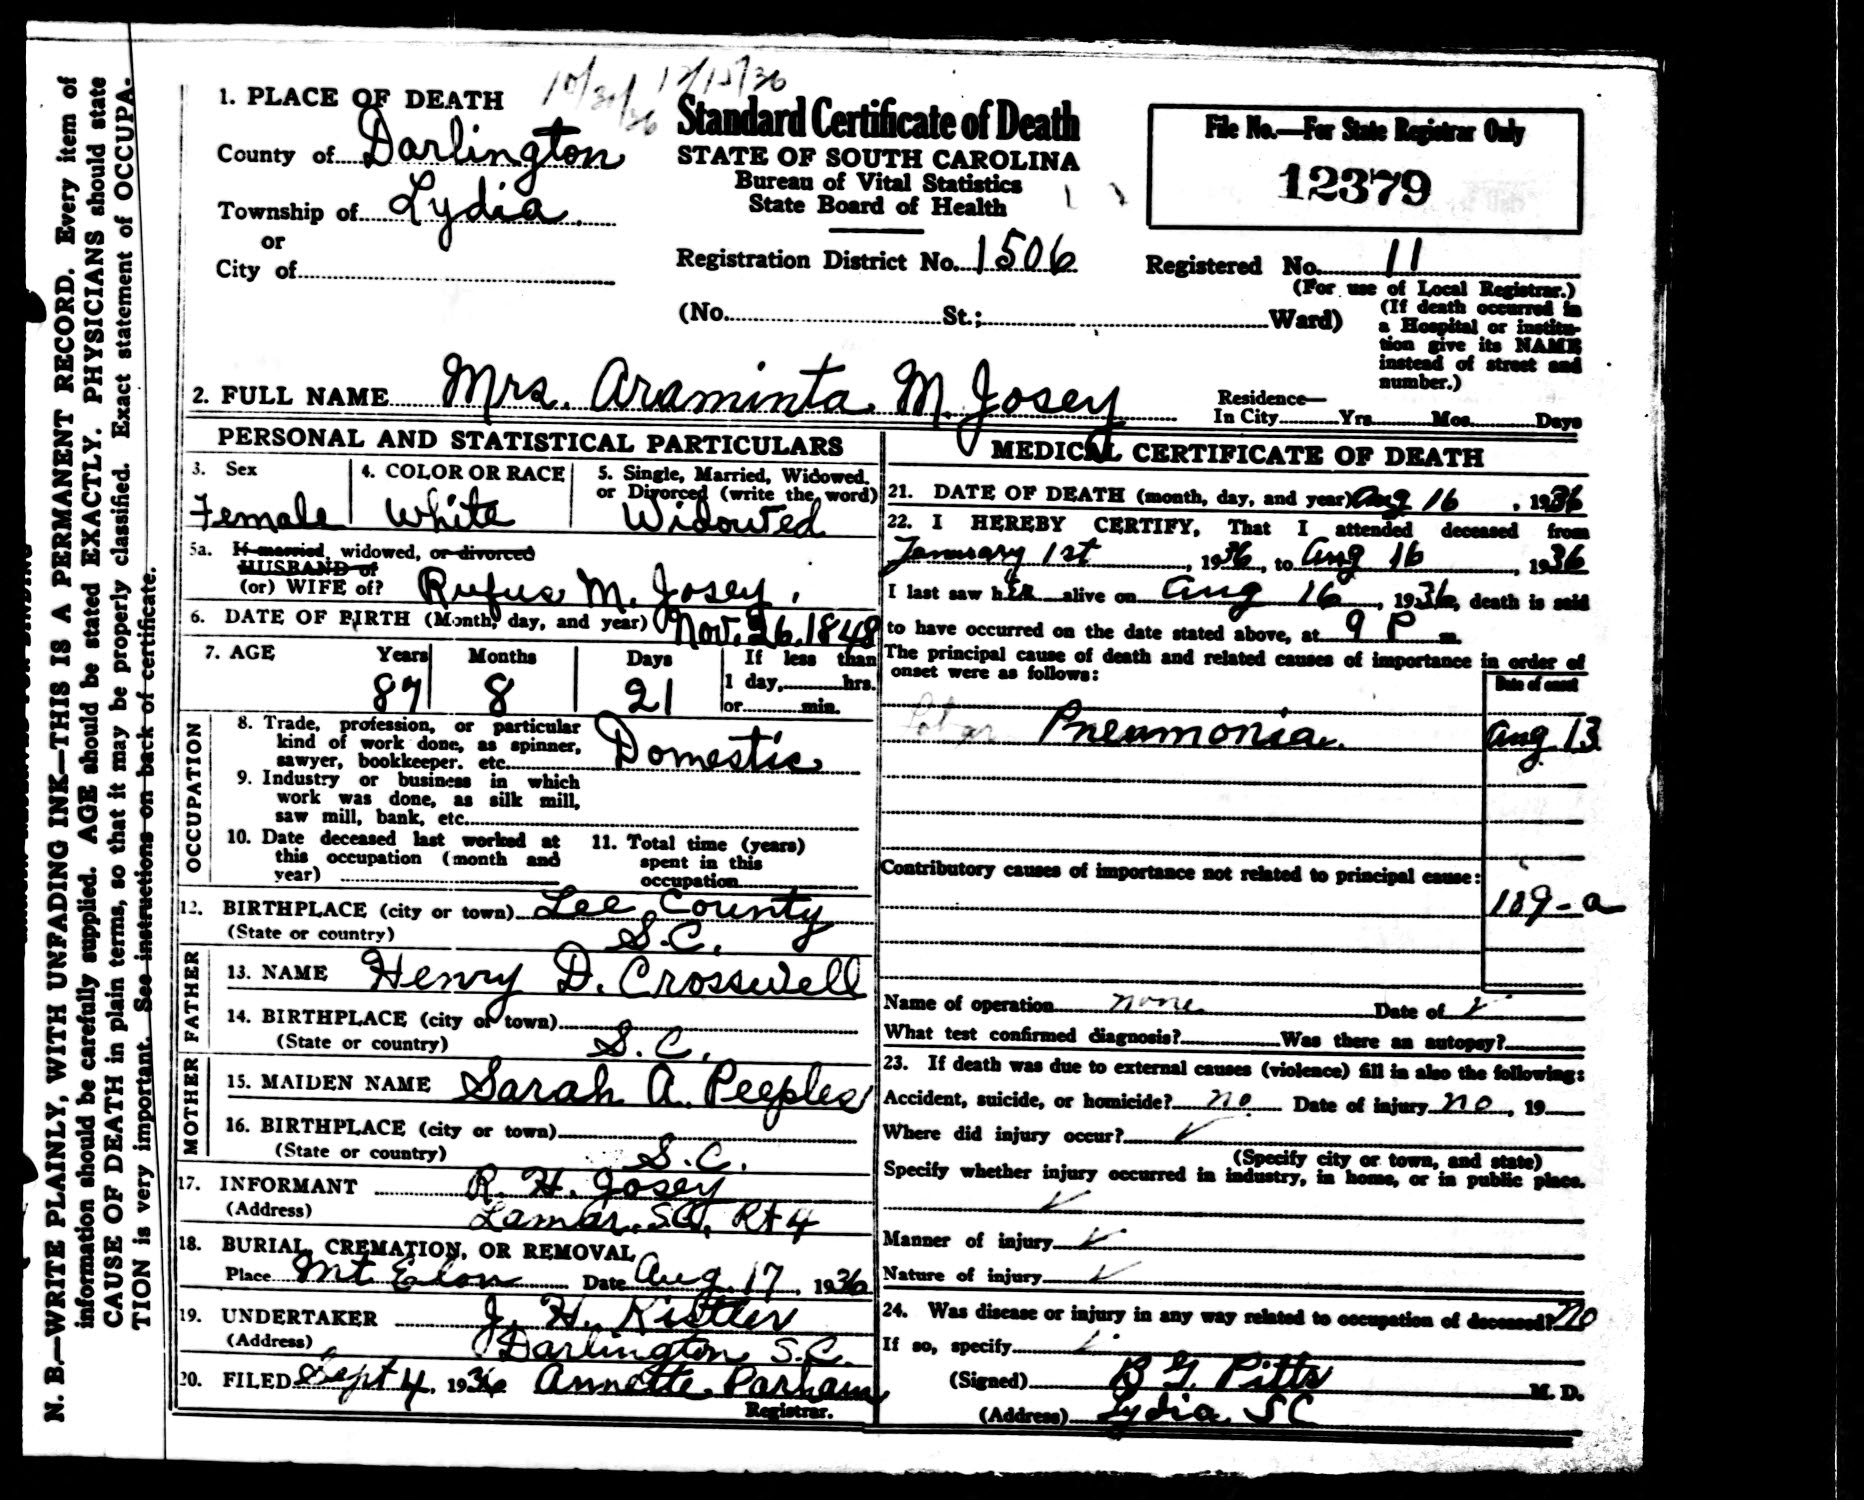 N. B.—WRITE PLAINLY, WITH UNFADING INK—THIS IS A PERMANENT RECORD. Every item of
information should be carefully supplied. AGE should be stated EXACTLY. PHYSICIANS should state
CAUSE OF DEATH in plain terms, so that it may be properly classified. Exact statement of OCCUPA-
TION is very important. See instructions on back of certificate.
10/30/36 12/15/36
1. PLACE OF DEATH
County of Darlington
Township of Lydia
or
City of
Standard Certificate of Death
STATE OF SOUTH CAROLINA
Bureau of Vital Statistics
State Board of Health
Registration District No. 1506
(No. St.; Ward)
File No.—For State Registrar Only
12379
Registered No. 11
(For use of Local Registrar.)
(If death occurred in
a Hospital or institu-
tion give its NAME
instead of street and
number.)
2. FULL NAME Mrs. Araminta M. Josey
Residence—
In City Yrs. Mos. Days
PERSONAL AND STATISTICAL PARTICULARS
3. Sex
Female
4. COLOR OR RACE
White
5. Single, Married, Widowed,
or Divorced (write the word)
Widowed
5a. If married, widowed, or divorced
HUSBAND of
(or) WIFE of? Rufus M. Josey.
6. DATE OF BIRTH (Month, day, and year) Nov. 26, 1848
7. AGE Years Months Days If less than
87 8 21 1 day, hrs.
or min.
OCCUPATION
8. Trade, profession, or particular
kind of work done, as spinner,
sawyer, bookkeeper. etc. Domestic
9. Industry or business in which
work was done, as silk mill,
saw mill, bank, etc.
10. Date deceased last worked at
this occupation (month and
year)
11. Total time (years)
spent in this
occupation
12. BIRTHPLACE (city or town) Lee County
(State or country) S.C.
FATHER
13. NAME Henry D. Crosswell
14. BIRTHPLACE (city or town)
(State or country) S. C.
MOTHER
15. MAIDEN NAME Sarah A. Peeples
16. BIRTHPLACE (city or town)
(State or country) S.C.
17. INFORMANT R. H. Josey
(Address) Lamar, S.C, Rt 4
18. BURIAL, CREMATION, OR REMOVAL
Place Mt Elon Date Aug. 17, 1936
19. UNDERTAKER J. H. Kistler
(Address) Darlington S.C.
20. FILED Sept 4, 1936 Annette Parham
Registrar.
MEDICAL CERTIFICATE OF DEATH
21. DATE OF DEATH (month, day, and year) Aug 16, 1936
22. I HEREBY CERTIFY, That I attended deceased from
January 1st, 1936, to Aug 16, 1936
I last saw her alive on Aug 16, 1936, death is said
to have occurred on the date stated above, at 9 P m.
The principal cause of death and related causes of importance in order of
onset were as follows:
Date of onset
Pneumonia. Aug 13
Contributory causes of importance not related to principal cause:
109-a
Name of operation none Date of ✓
What test confirmed diagnosis? Was there an autopsy?
23. If death was due to external causes (violence) fill in also the following:
Accident, suicide, or homicide? no Date of injury no, 19
Where did injury occur? ✓
(Specify city or town, and state)
Specify whether injury occurred in industry, in home, or in public place.
✓
Manner of injury ✓
Nature of injury ✓
24. Was disease or injury in any way related to occupation of deceased? no
If so, specify
(Signed) B G. Pitts M. D.
(Address) Lydia SC